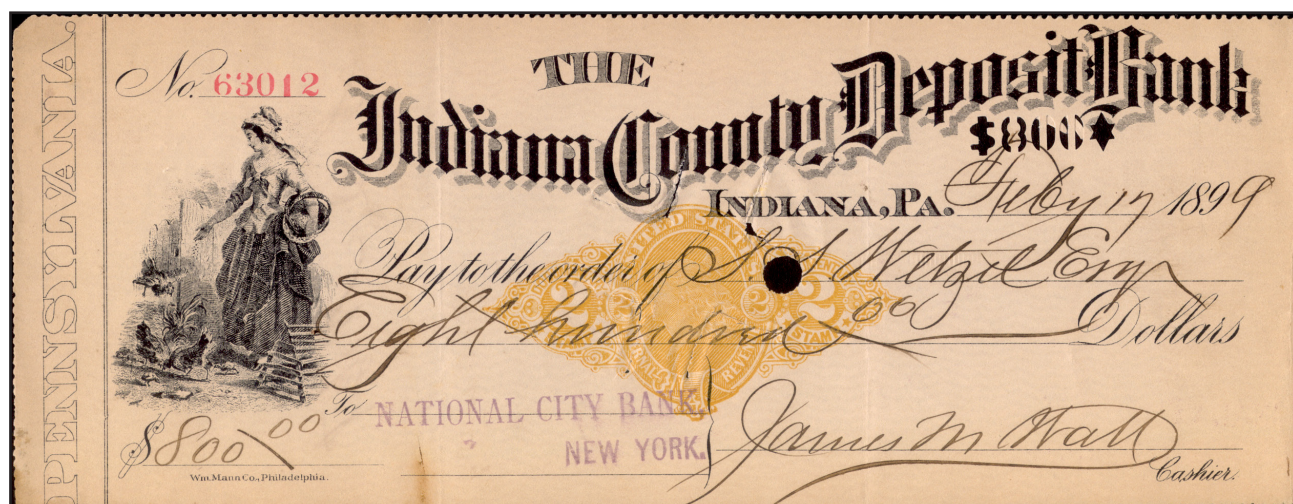 PENNSYLVANIA.
No. 63012
THE
Indiana County Deposit Bank
$800
INDIANA, PA. Feby 17 1899
Pay to the order of S. Wetzel Esq
Eight hundred 00 Dollars
UNITED STATES
2 2 2 2
INTERNAL REVENUE STAMP
To NATIONAL CITY BANK,
NEW YORK.
$800.00
James M Watt
Cashier.
Wm. Mann Co., Philadelphia.